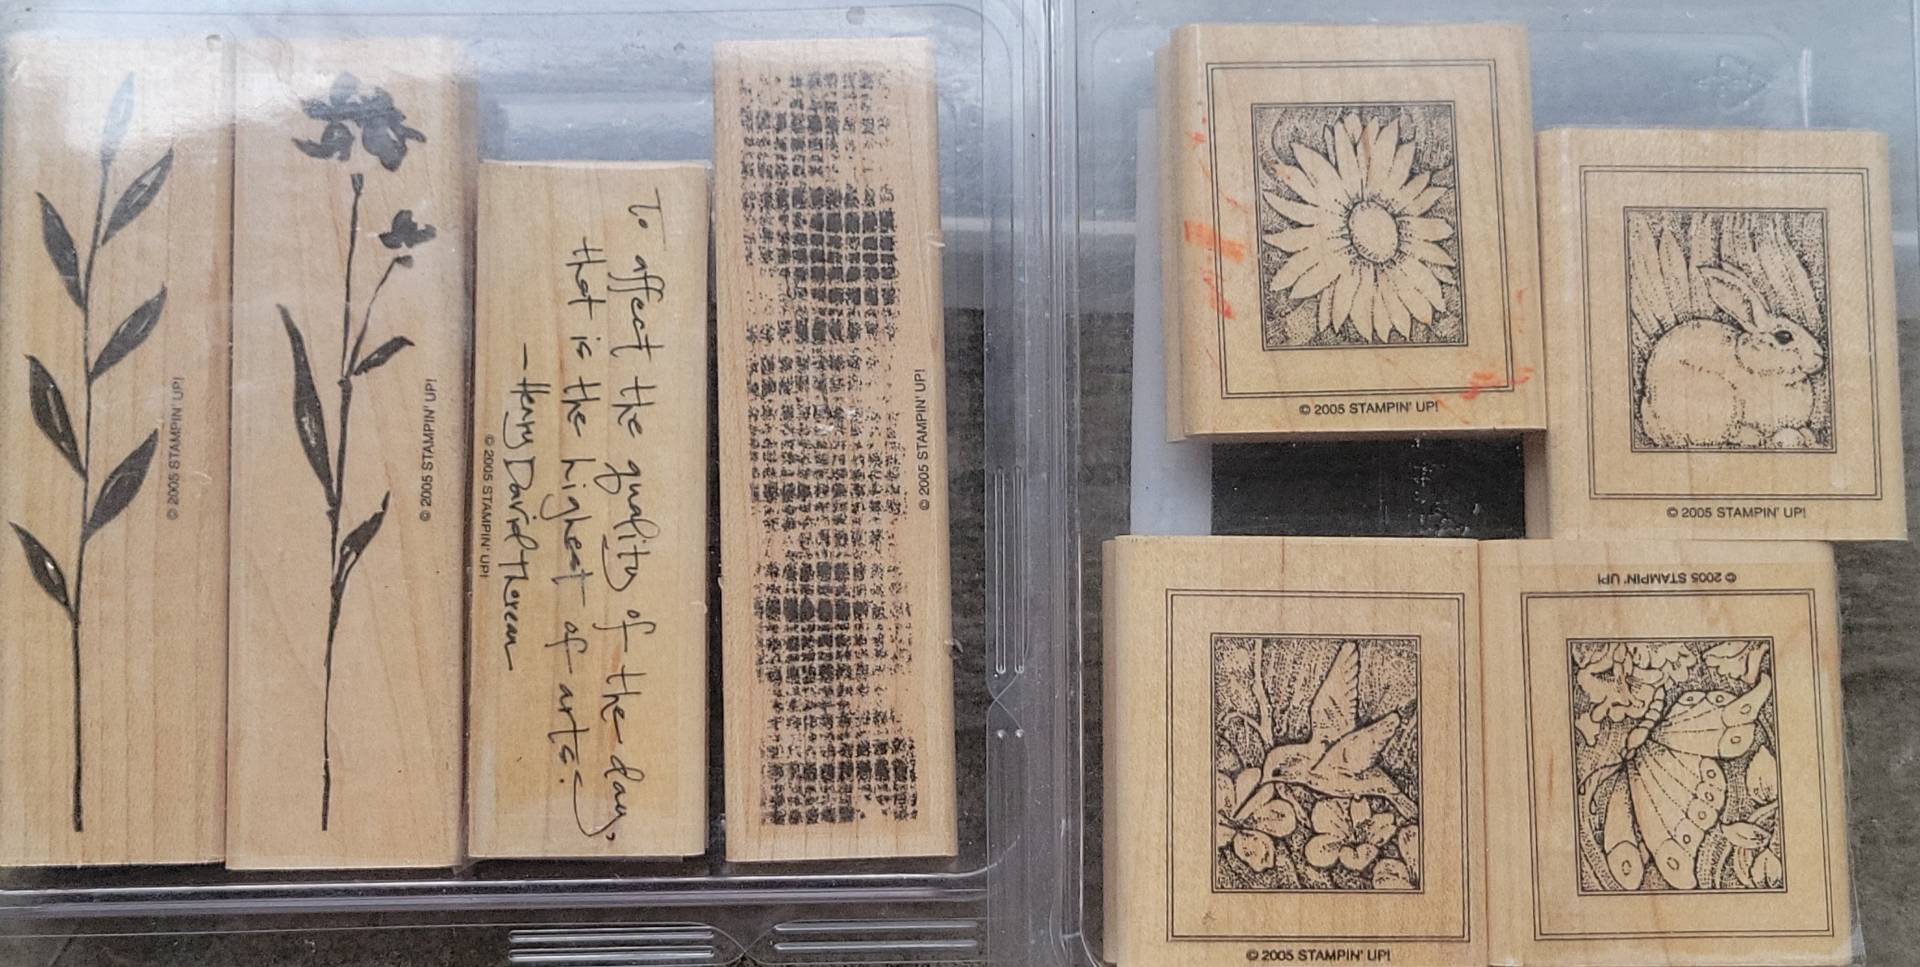 © 2005 STAMPIN' UP!
© 2005 STAMPIN' UP!
To affect the quality of the day,
that is the highest of arts.
- Henry David Thoreau
© 2005 STAMPIN' UP!
© 2005 STAMPIN' UP!
© 2005 STAMPIN' UP!
© 2005 STAMPIN' UP!
© 2005 STAMPIN' UP!
© 2005 STAMPIN' UP!